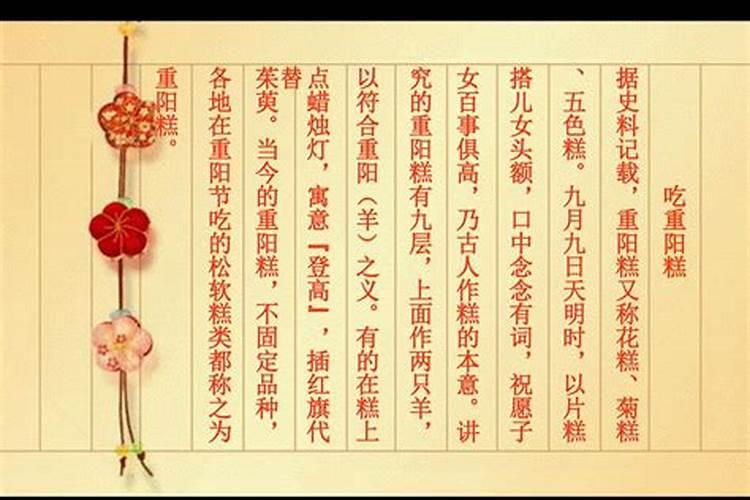 吃重阳糕
据史料记载，重阳糕又称花糕、菊糕
、五色糕。九月九日天明时，以片糕
搭儿女头额，口中念念有词，祝愿子
女百事俱高，乃古人作糕的本意。讲
究的重阳糕有九层，上面作两只羊，
以符合重阳（羊）之义。有的在糕上
点蜡烛灯，寓意『登高』，插红旗代
替
茱萸。当今的重阳糕，不固定品种，
各地在重阳节吃的松软糕类都称之为
重阳糕。